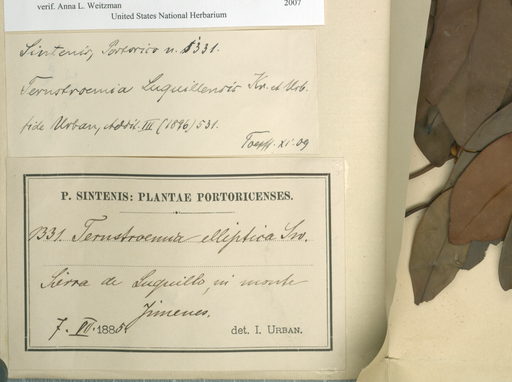 verif. Anna L. Weitzman 2007
United States National Herbarium
Sintenis, Portorico n. 1331.
Ternstroemia Luquillensis Kr. et Urb.
fide Urban, Addit. III (1896) 531.
Toepff. XI. 09
P. SINTENIS: PLANTAE PORTORICENSES.
1331. Ternstroemia elliptica Sw.
Sierra de Luquillo, in monte
Jimenes.
7. VII. 1885. det. I. URBAN.